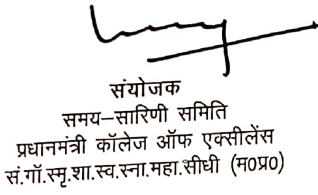 संयोजक
समय–सारिणी समिति
प्रधानमंत्री कॉलेज ऑफ एक्सीलेंस
सं.गॉ.स्मृ.शा.स्व.स्ना.महा.सीधी (म0प्र0)